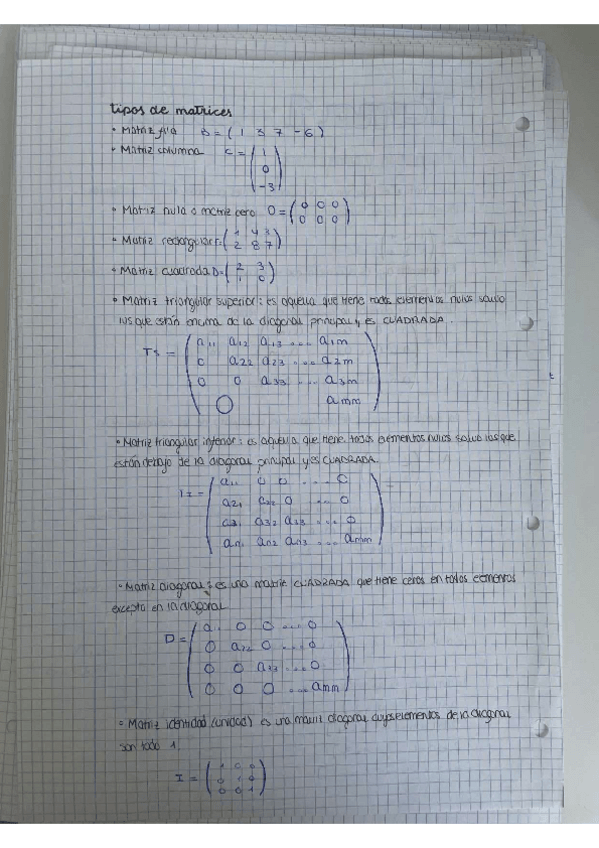 tipos de matrices
• Matriz fila B = ( 1 3 7 -6 )
• Matriz columna C = ( 1
0
-3 )
• Matriz nula o matriz cero O = ( 0 0 0
0 0 0 )
• Matriz rectangular F = ( 1 4
2 8 7 )
• Matriz cuadrada D = ( 2 3
1 0 )
• Matriz triangular superior: es aquella que tiene todos elementos nulos salvo
los que están encima de la diagonal principal y es CUADRADA.
Ts = ( a11 a12 a13 ... a1m
0 a22 a23 ... a2m
0 0 a33 ... a3m
0 amm )
• Matriz triangular inferior: es aquella que tiene todos elementos nulos salvo los que
están debajo de la diagonal principal y es CUADRADA.
( a11 0 0 ... 0
a21 a22 0 ... 0
a31 a32 a33 ... 0
an1 an2 an3 ... amm )
• Matriz diagonal: es una matriz CUADRADA que tiene ceros en todos elementos
excepto en la diagonal
D = ( a11 0 0 ... 0
0 a22 0 ... 0
0 0 a33 ... 0
0 0 0 ... amm )
• Matriz identidad (unidad) es una matriz diagonal cuyos elementos de la diagonal
son todo 1.
I = ( 1 0 0
0 1 0
0 0 1 )